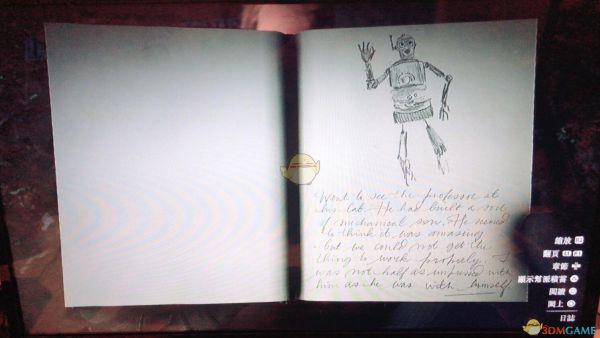 Went to see the professor at
his lab. He has built a sort
of mechanical son. He seemed
to think it was amazing
but we could not get the
thing to work properly. I
was not half as impressed with
him as he was with himself
縮放
翻頁
章節
顯示幫派積蓄
閱讀
闔上
日誌
3DMGAME